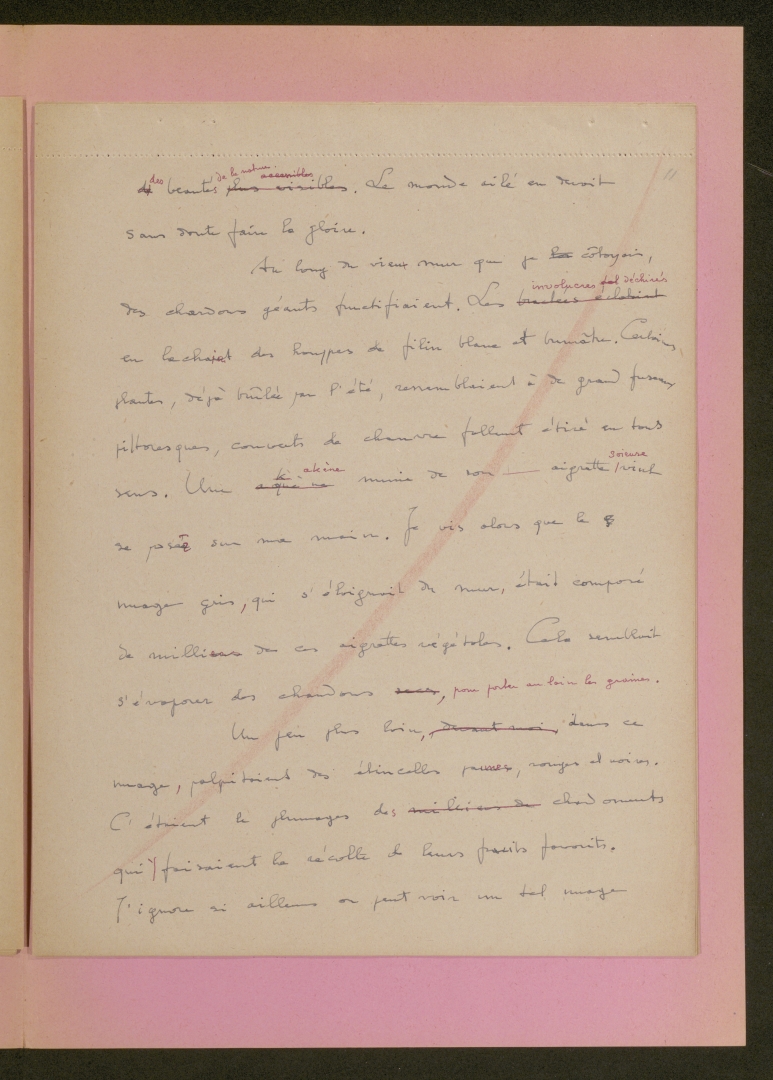 11
des beautés de la nature accessibles. Le monde ailé en devait
sans doute faire la gloire.
Au long du vieux mur que je côtoyais,
des chardons géants fructifiaient. Les involucres déchirés
en lachaient des houppes de filin blanc et brunâtre. Certaines
plantes, déjà brûlée par l'été, ressemblaient à de grand fuseaux
pittoresques, couverts de chanvre follement étiré en tous
sens. Une akène munie de son aigrette soieuse vint
se posée sur ma main. Je vis alors que le
nuage gris, qui s'éloignait du mur, était composé
de milliers de ces aigrettes végétales. Cela semblait
s'évaporer des chardons, pour porter au loin les graines.
Un peu plus loin, dans ce
nuage, palpitaient des étincelles jaunes, rouges et noires.
C'étaient le plumages des chardonnerets
qui y faisaient la récolte de leurs fruits favorits.
J'ignore si ailleurs on peut voir un tel nuage